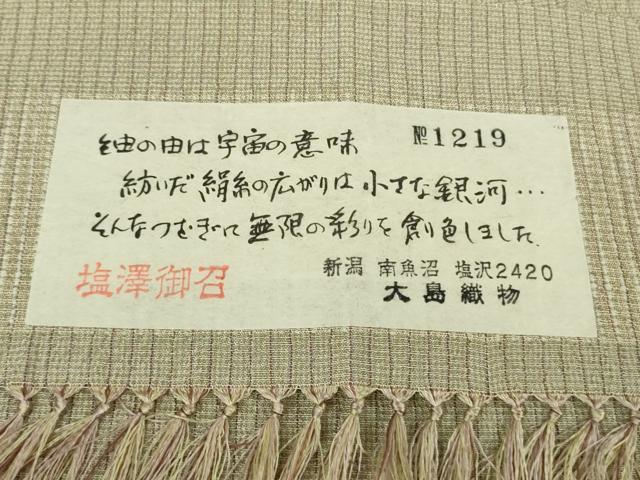 №1219
紬の由は宇宙の意味
紡いだ絹糸の広がりは小さな銀河…
そんなつむぎに無限の彩りを創色しました.
塩澤御召
新潟 南魚沼 塩沢2420
大島織物